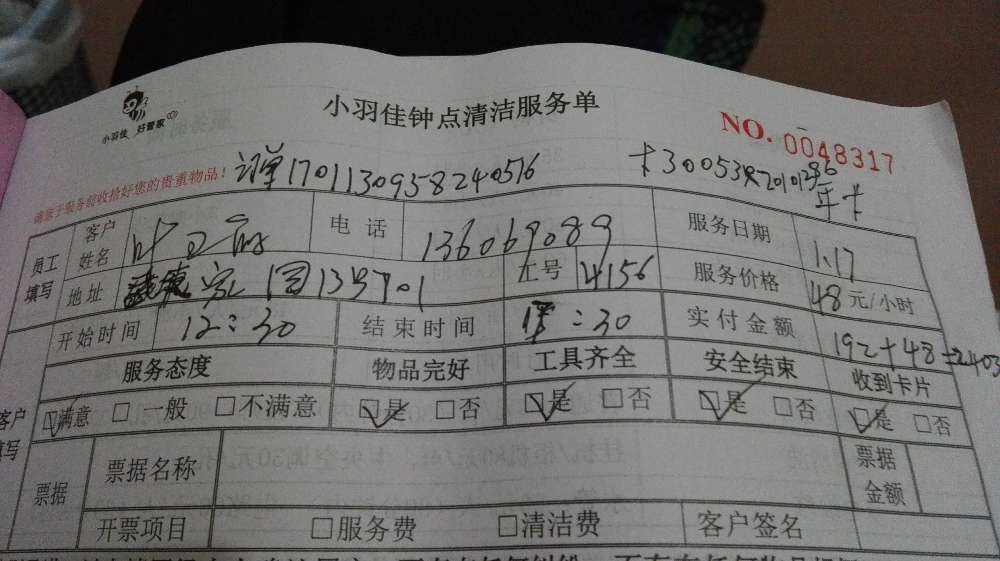 小羽佳 好管家
小羽佳钟点清洁服务单
NO. 0048317
请您于服务前收拾好您的贵重物品!
单1701130958240516
年卡
员工填写
客户姓名
电话 136069089
服务日期 1.17
地址
工号 4156
服务价格 48元/小时
开始时间 12:30
结束时间 :30
实付金额 192+48=240
服务态度 物品完好 工具齐全 安全结束 收到卡片
客户填写
☑满意 □一般 □不满意 ☑是 □否 ☑是 □否 ☑是 □否 ☑是 □否
票据
票据名称
票据金额
开票项目 □服务费 □清洁费 客户签名